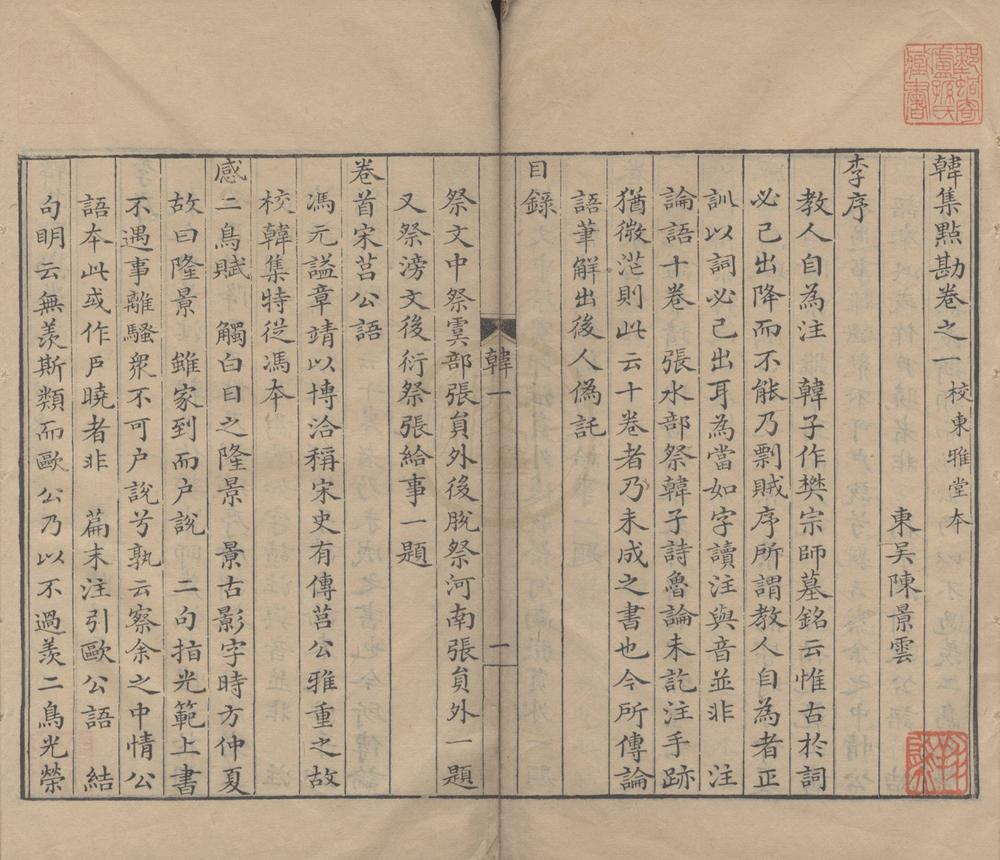 韓集點勘卷之一 校東雅堂本
東吳陳景雲
李序
教人自為注 韓子作樊宗師墓銘云惟古於詞
必己出降而不能乃剽賊序所謂教人自為者正
訓以詞必己出耳為當如字讀注與音並非 注
論語十卷 張水部祭韓子詩魯論未訖注手跡
猶微茫則此云十卷者乃未成之書也今所傳論
語筆解出後人偽託
目錄
祭文中祭虞部張員外後脫祭河南張員外一題
又祭滂文後衍祭張給事一題
韓一
一
卷首宋莒公語
馮元謚章靖以博洽稱宋史有傳莒公雅重之故
校韓集特從馮本
感二鳥賦 觸白日之隆景 景古影字時方仲夏
故曰隆景 雖家到而户說 二句指光範上書
不遇事離騷衆不可户說兮孰云察余之中情公
語本此或作戸曉者非 篇末注引歐公語 結
句眀云無羨斯類而歐公乃以不過羨二鳥光榮